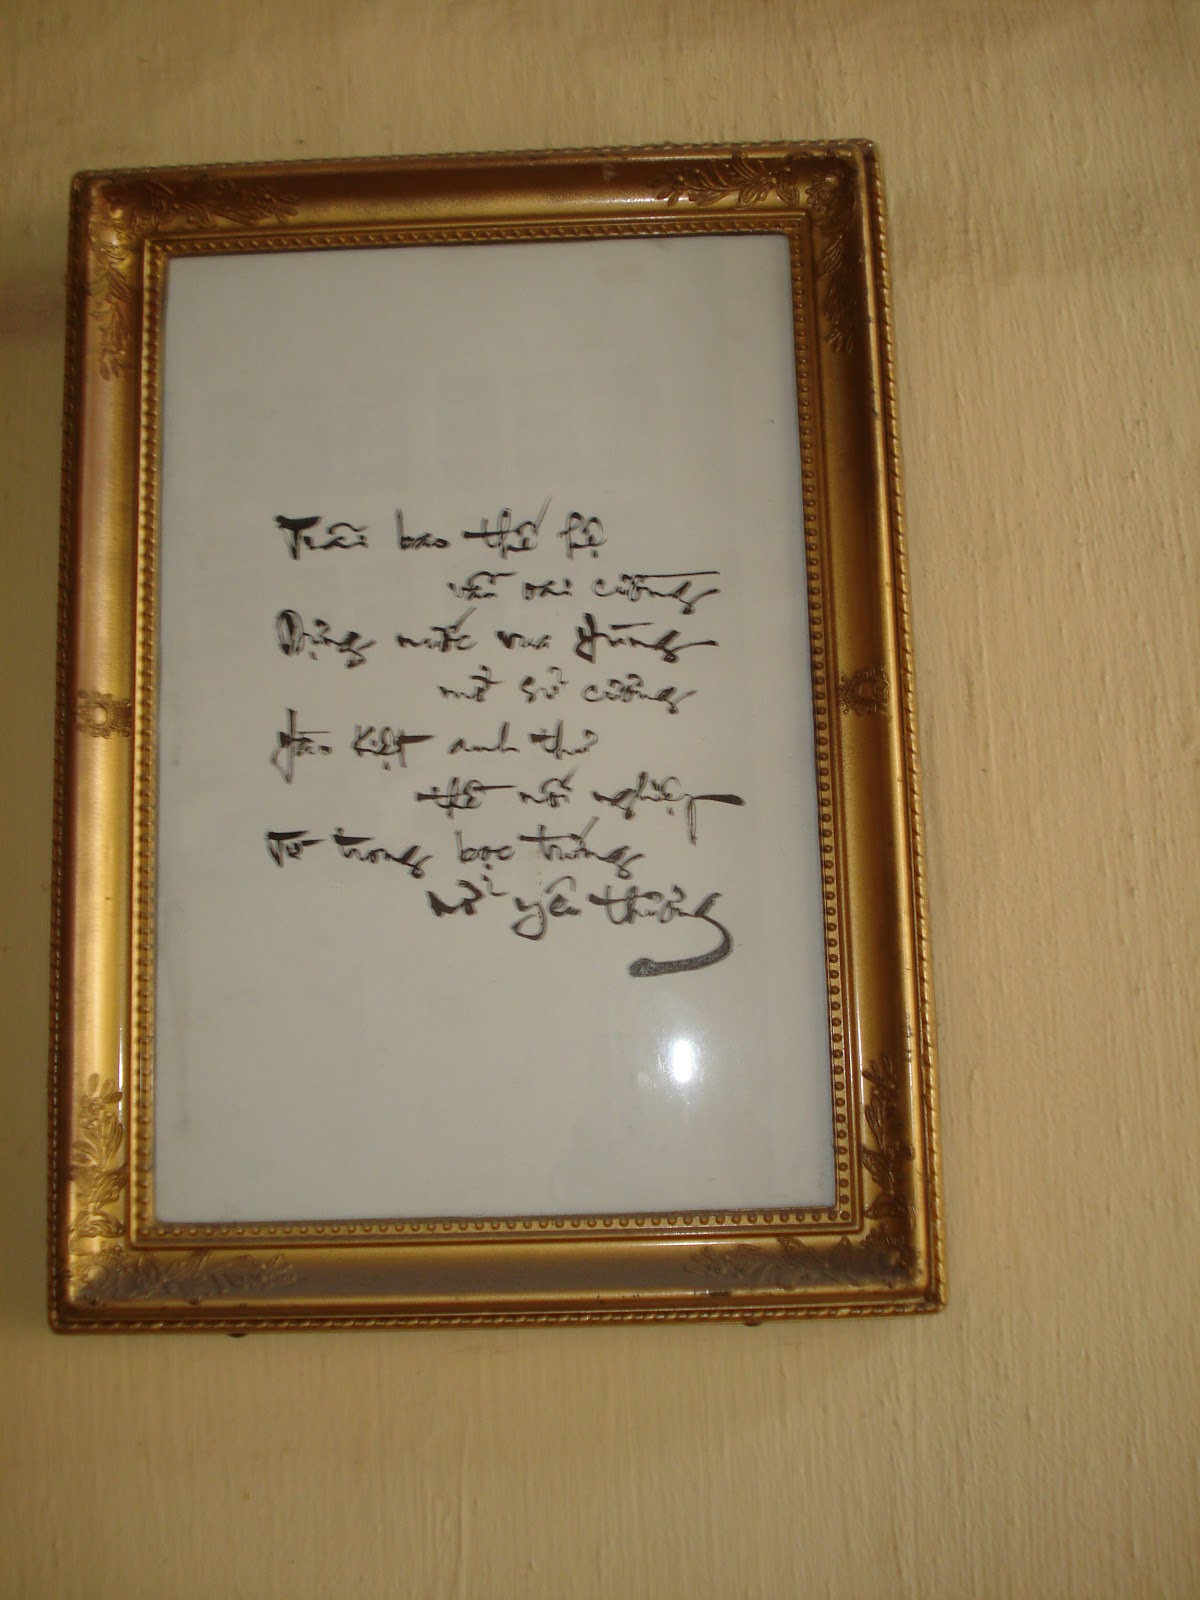 Trãi bao thế hệ
vẫn oai cường
Dựng nước vua Hùng
mở sử cường
Hào kiệt anh thư
thề nối nghiệp
Từ trong bọc trứng
nở yêu thương